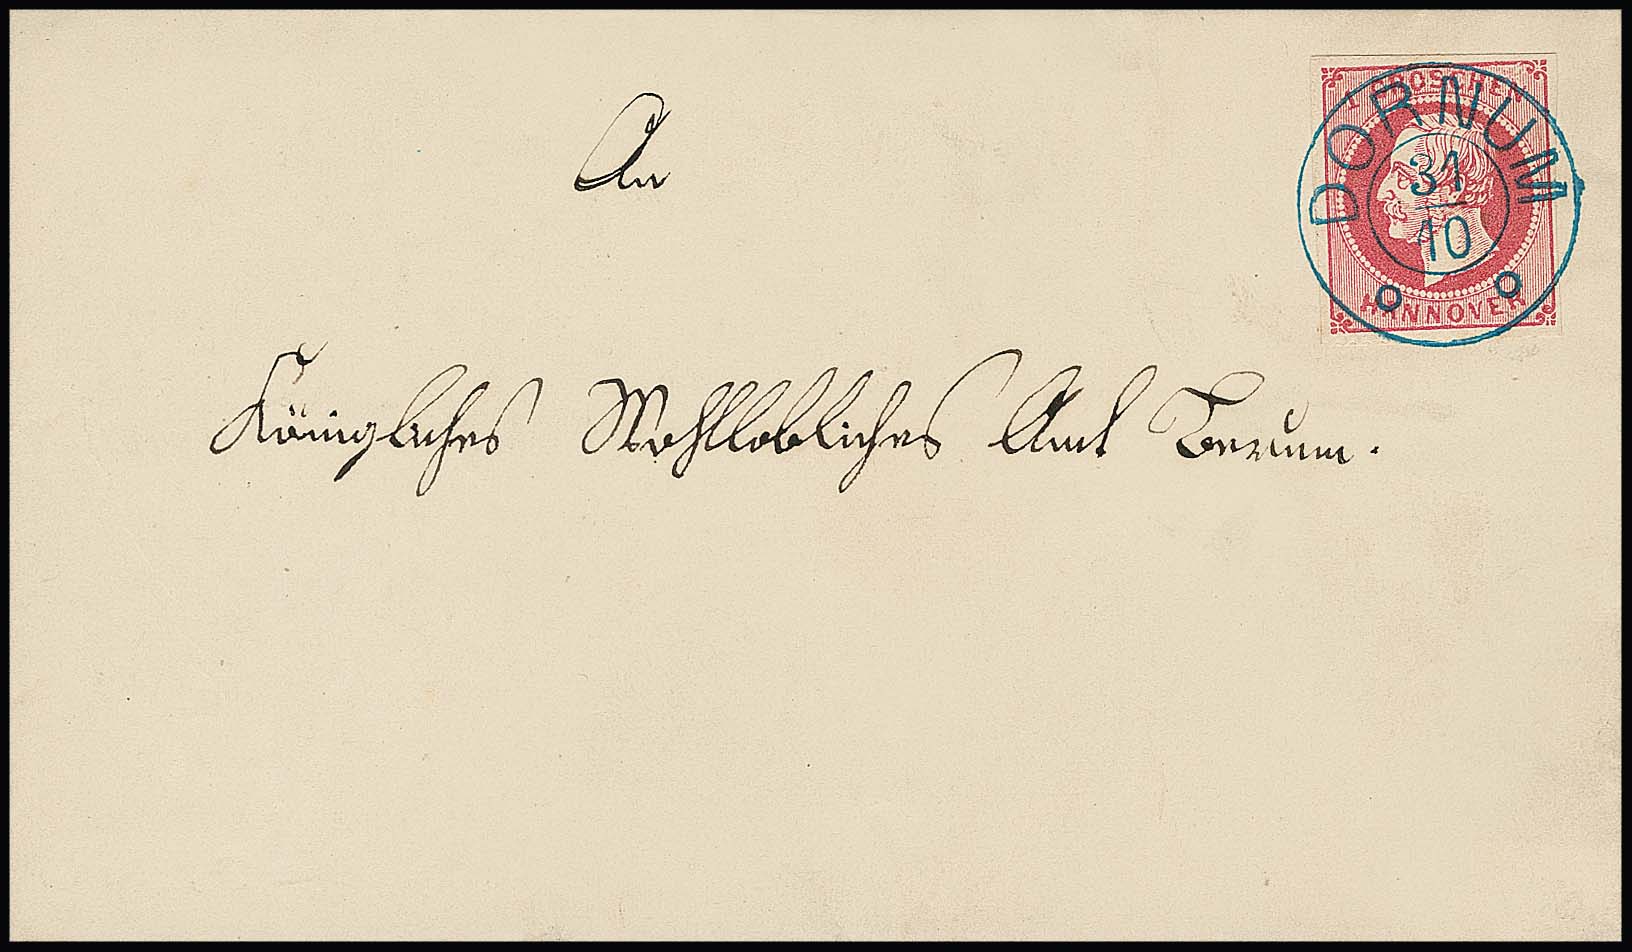 1 GROSCHEN
HANNOVER
DORNUM
31
10
An
Königliches Wohllöbliches Amt Berum.